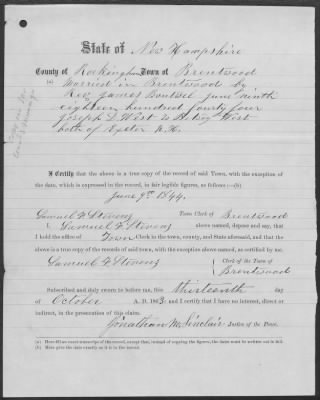 State of New Hampshire
County of Rockingham Town of Brentwood
(a) Married in Brentwood by
Rev. James Boutwel June ninth
eighteen hundred forty four
Joseph D. West to Betsy West
both of Exeter N.H.
I Certify that the above is a true copy of the record of said Town, with the exception of
the date, which is expressed in the record, in fair legible figures, as follows:—(b)
June 9th 1844.
Samuel F. Stevens Town Clerk of Brentwood
I, Samuel F. Stevens above named, depose and say, that
I hold the office of Town Clerk in the town, county, and State aforesaid, and that the
above is a true copy of the records of said town, with the exception above, as certified by me.
Samuel F. Stevens Clerk of the Town of
Brentwood
Subscribed and duly sworn to before me, this thirteenth day
of October A. D. 1883, and I certify that I have no interest, direct or
indirect, in the prosecution of this claim.
Jonathan M. Sinclair Justice of the Peace.
(a) Here fill an exact transcript of the record, except that, instead of copying the figures, the date must be written out in full.
(b) Here give the date exactly as it is in the record.